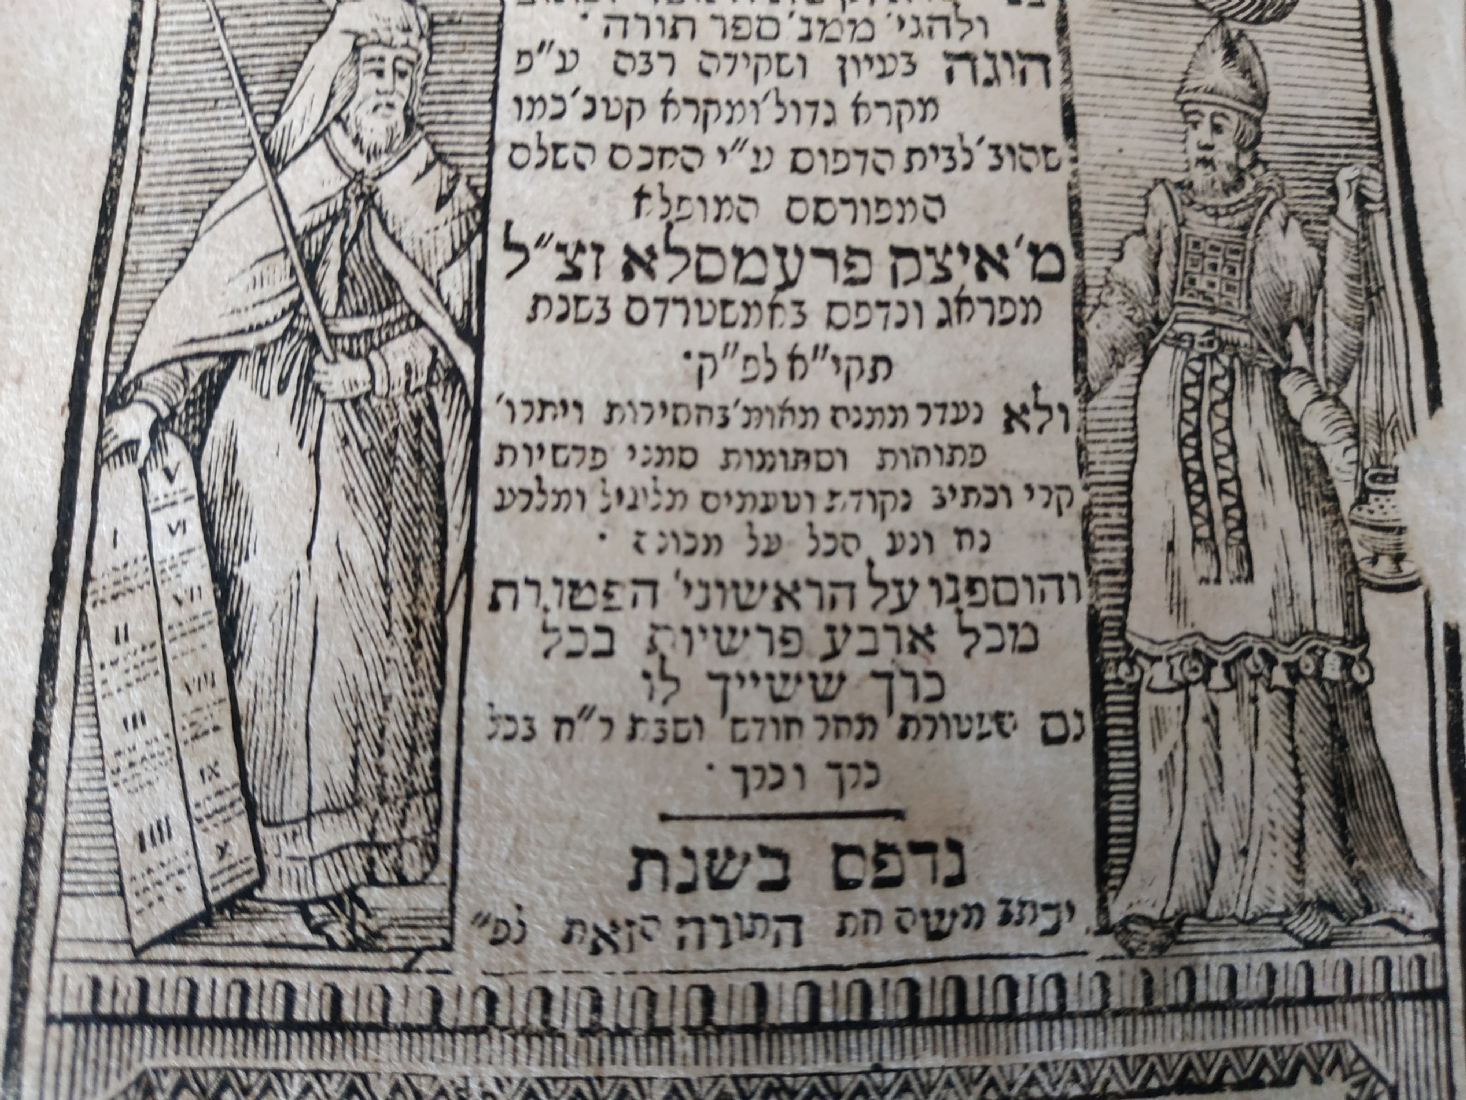 ולהגי׳ ממנ׳ ספר תורה ·
הוגה בעיון ושקידה רבה ע״פ
מקרא גדול׳ ומקרא קטנ׳ כמו
שהוב׳ לבית הדפוס ע״י החכם השלם
המפורסם המופלא
מ׳ איצק פרעמסלא זצ״ל
מפראג ונדפס באמשטרדם בשנת
תקי״א לפ״ק·
ולא נעדר ממנה מאומ׳ בחסירות ויתרו׳
פתוחות וסתומות סמני פרשיות
קרי וכתיב נקודת וטעמים מלעיל ומלרע
נח ונע הכל על מכונו ·
והוספנו על הראשוני׳ הפטורת
מכל ארבע פרשיות בכל
כרך ששייך לו
גם הפטורת מחר חודש ושבת ר״ח בכל
כרך וכרך ·
נדפס בשנת
ויכתב משה את התורה הזאת לפ״
I
II
III
IIII
V
VI
VII
VIII
IX
X